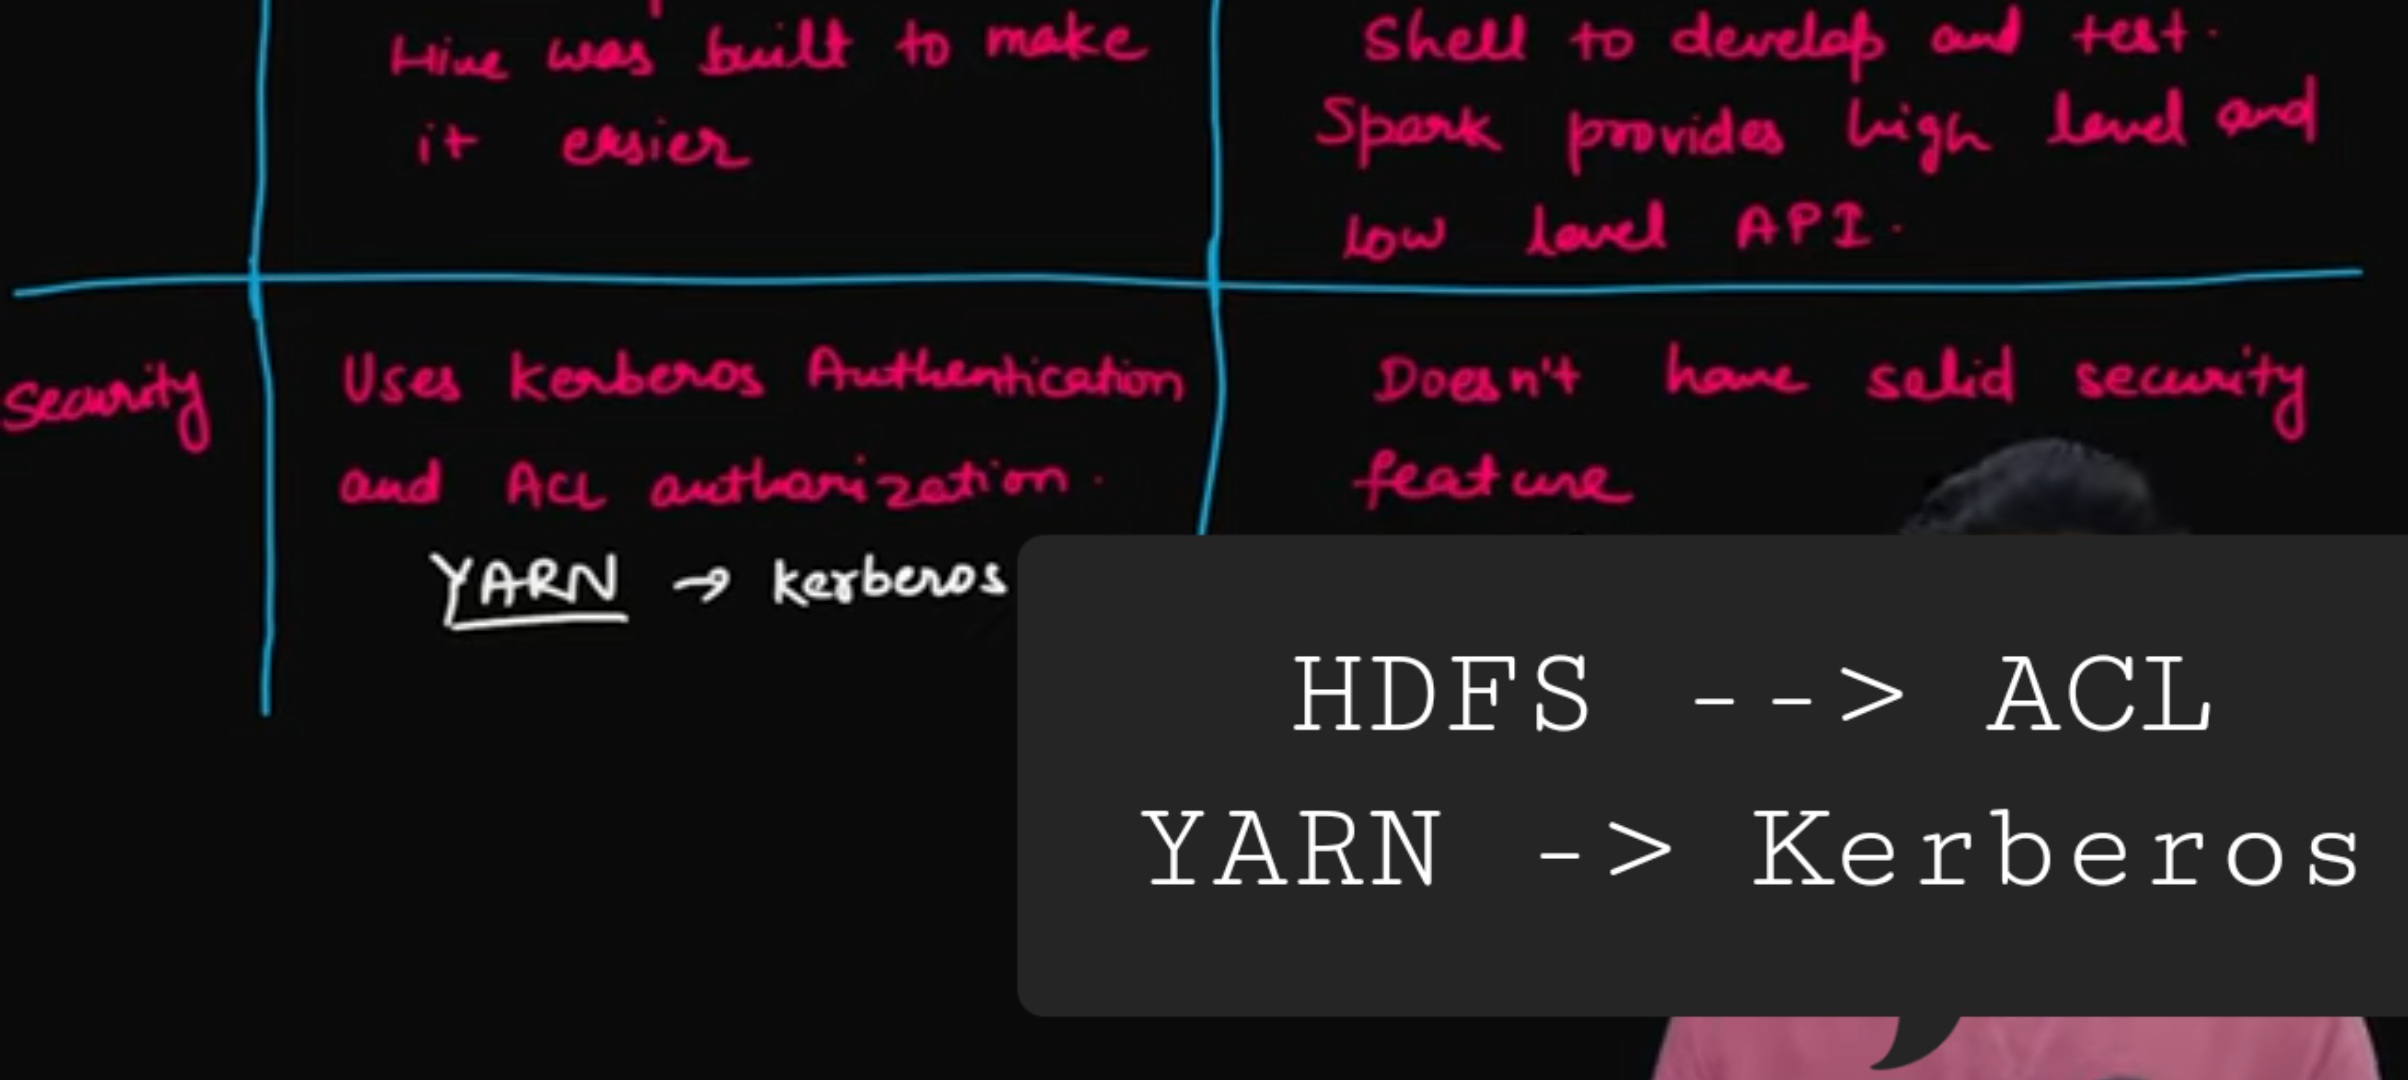 Hive was built to make
it easier
Shell to develop and test.
Spark provides high level and
low level API.
Security
Uses Kerberos Authentication
and ACL authorization.
YARN → kerberos
Doesn't have solid security
feature
HDFS --> ACL
YARN -> Kerberos